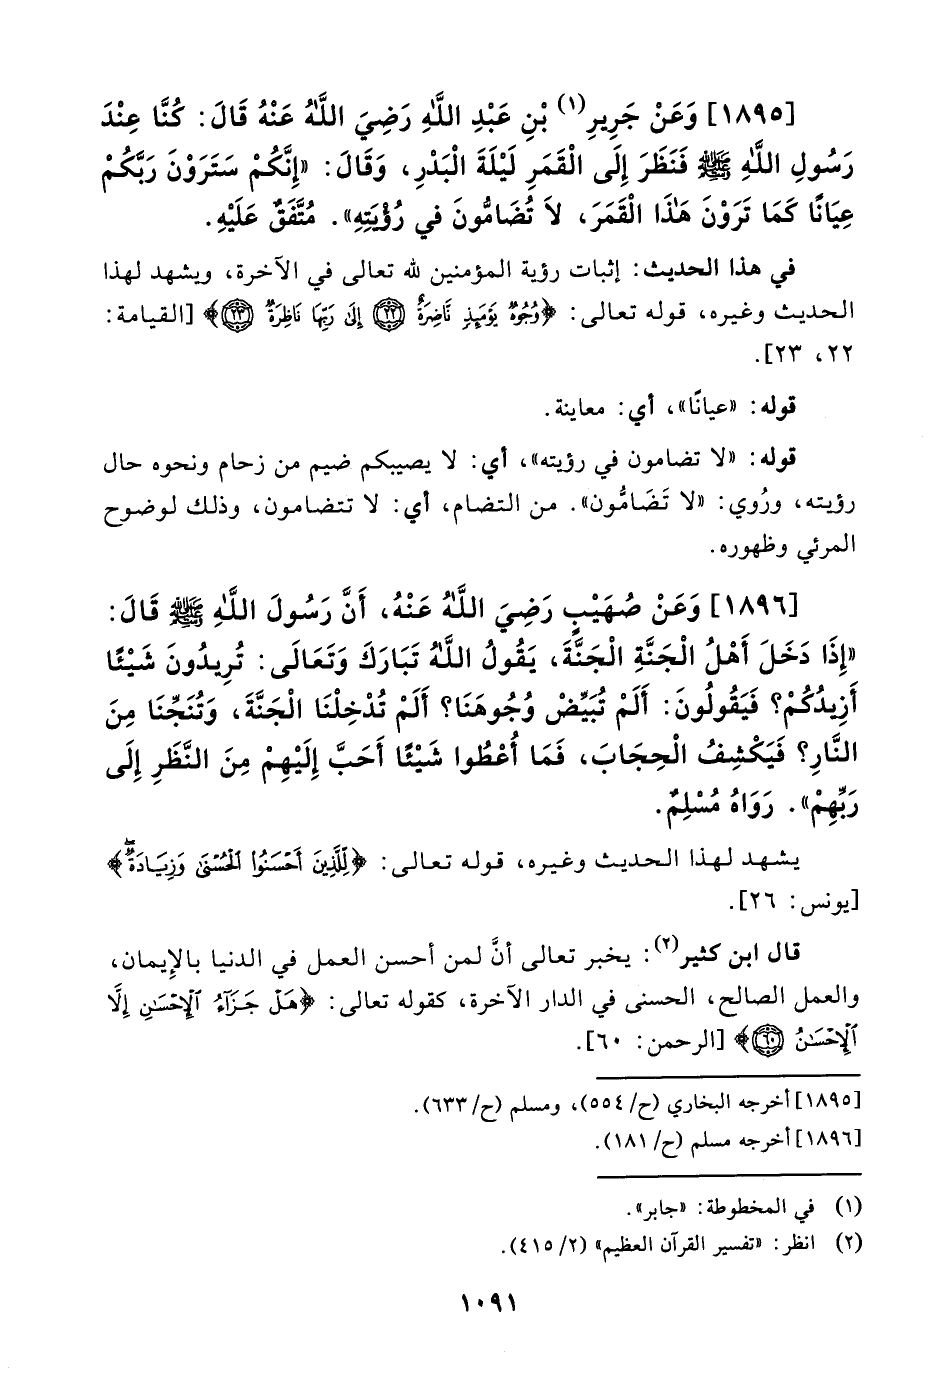 [١٨٩٥] وَعَنْ جَرِيرِ(١) بْنِ عَبْدِ اللَّهِ رَضِيَ اللَّهُ عَنْهُ قَالَ: كُنَّا عِنْدَ
رَسُولِ اللَّهِ ﷺ فَنَظَرَ إِلَى الْقَمَرِ لَيْلَةَ الْبَدْرِ، وَقَالَ: «إِنَّكُمْ سَتَرَوْنَ رَبَّكُمْ
عِيَانًا كَمَا تَرَوْنَ هَذَا الْقَمَرَ، لاَ تُضَامُّونَ في رُؤْيَتِهِ». مُتَّفَقٌ عَلَيْهِ.
في هذا الحديث: إثبات رؤية المؤمنين لله تعالى في الآخرة، ويشهد لهذا
الحديث وغيره، قوله تعالى: ﴿وُجُوهٌ يَوْمَئِذٍ نَّاضِرَةٌ ۝٢٢ إِلَى رَبِّهَا نَاظِرَةٌ ۝٢٣﴾ [القيامة:
٢٢، ٢٣].
قوله: «عيانًا»، أي: معاينة.
قوله: «لا تضامون في رؤيته»، أي: لا يصيبكم ضيم من زحام ونحوه حال
رؤيته، ورُوي: «لا تَضَامُّون». من التضام، أي: لا تتضامون، وذلك لوضوح
المرئي وظهوره.
[١٨٩٦] وَعَنْ صُهَيْبٍ رَضِيَ اللَّهُ عَنْهُ، أَنَّ رَسُولَ اللَّهِ ﷺ قَالَ:
«إِذَا دَخَلَ أَهْلُ الْجَنَّةِ الْجَنَّةَ، يَقُولُ اللَّهُ تَبَارَكَ وَتَعَالَى: تُرِيدُونَ شَيْئًا
أَزِيدُكُمْ؟ فَيَقُولُونَ: أَلَمْ تُبَيِّضْ وُجُوهَنَا؟ أَلَمْ تُدْخِلْنَا الْجَنَّةَ، وَتُنَجِّنَا مِنَ
النَّارِ؟ فَيَكْشِفُ الْحِجَابَ، فَمَا أُعْطُوا شَيْئًا أَحَبَّ إِلَيْهِمْ مِنَ النَّظَرِ إِلَى
رَبِّهِمْ». رَوَاهُ مُسْلِمٌ.
يشهد لهذا الحديث وغيره، قوله تعالى: ﴿لِّلَّذِينَ أَحْسَنُوا الْحُسْنَىٰ وَزِيَادَةٌ ۖ﴾
[يونس: ٢٦].
قال ابن كثير(٢): يخبر تعالى أنَّ لمن أحسن العمل في الدنيا بالإيمان،
والعمل الصالح، الحسنى في الدار الآخرة، كقوله تعالى: ﴿هَلْ جَزَآءُ ٱلْإِحْسَٰنِ إِلَّا
ٱلْإِحْسَٰنُ ۝٦٠﴾ [الرحمن: ٦٠].
[١٨٩٥] أخرجه البخاري (ح/ ٥٥٤)، ومسلم (ح/ ٦٣٣).
[١٨٩٦] أخرجه مسلم (ح/ ١٨١).
(١) في المخطوطة: «جابر».
(٢) انظر: «تفسير القرآن العظيم» (٢/ ٤١٥).
١٠٩١